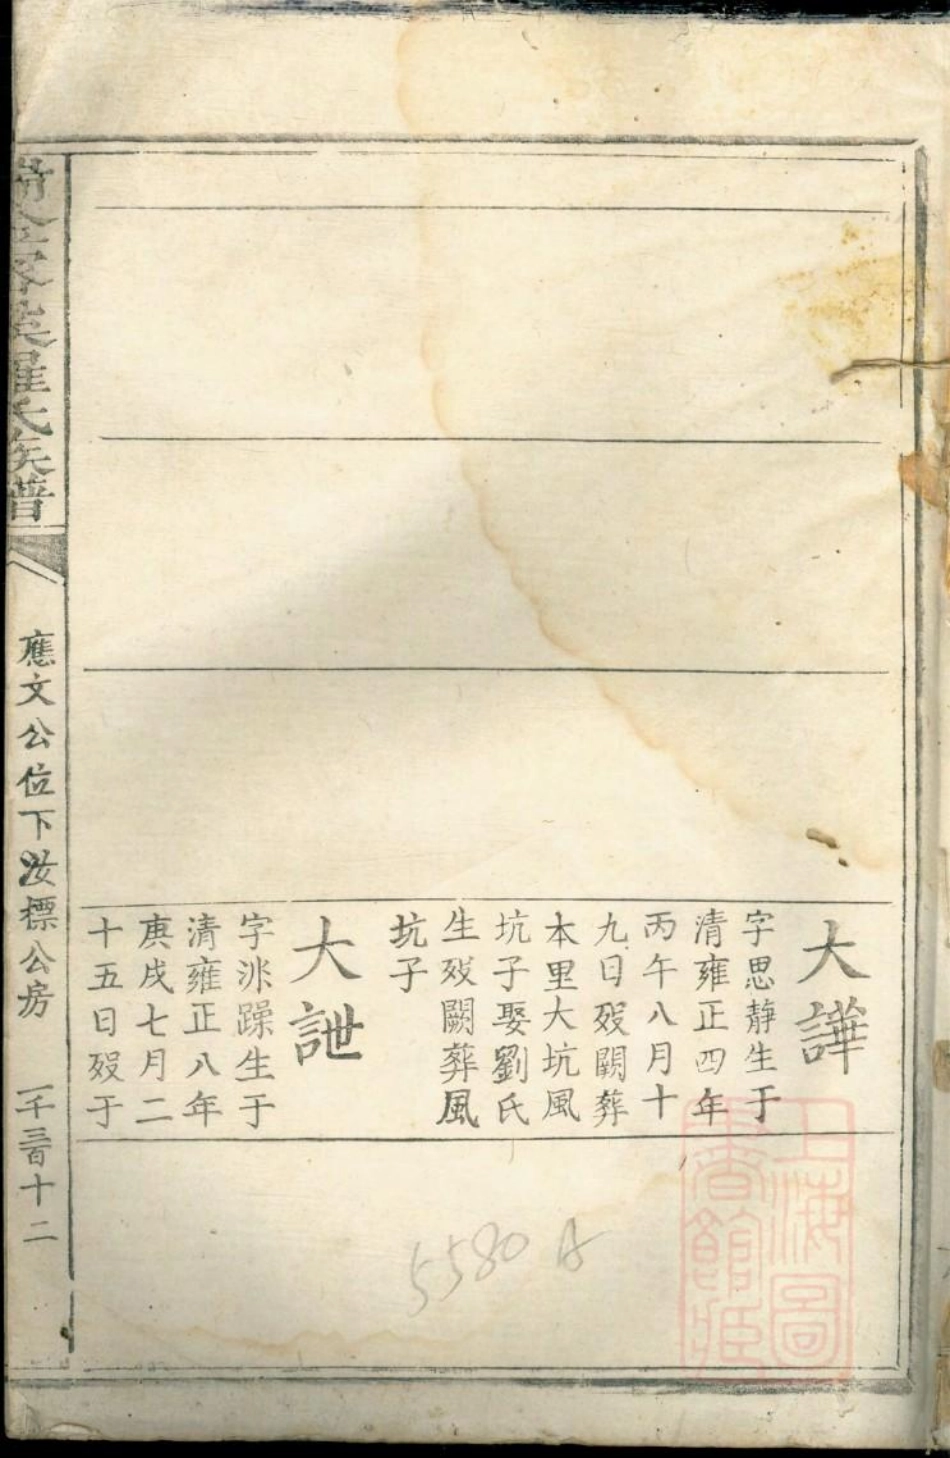 大譁
字思静生于
清雍正四年
丙午八月十
九日殁闕葬
本里大坑風
坑子娶劉氏
生殁闕葬風
坑子
大詍
字洮躁生于
清雍正八年
庚戌七月二
十五日殁于
羅氏族譜
應文公位下汝標公房
一千三百十二
上海圖
書館
5580 A